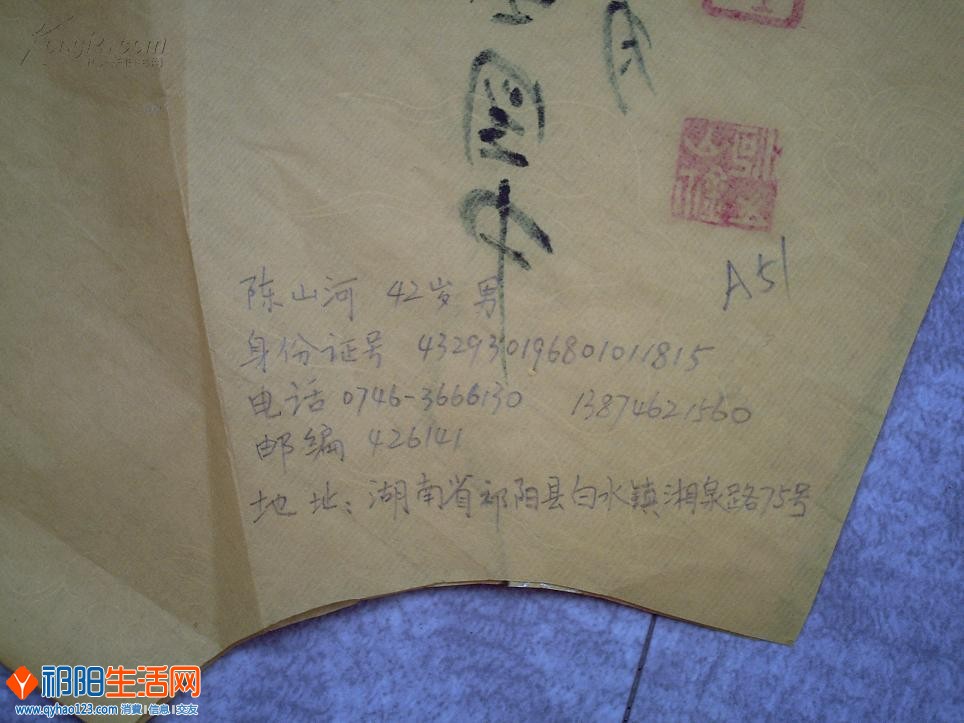 A51
陈山河 42岁 男
身份证号 432930196801011815
电话 0746-3666130 13874621560
邮编 426141
地址：湖南省祁阳县白水镇湘泉路75号
祁阳生活网
www.qyhao123.com 消费|信息|交友